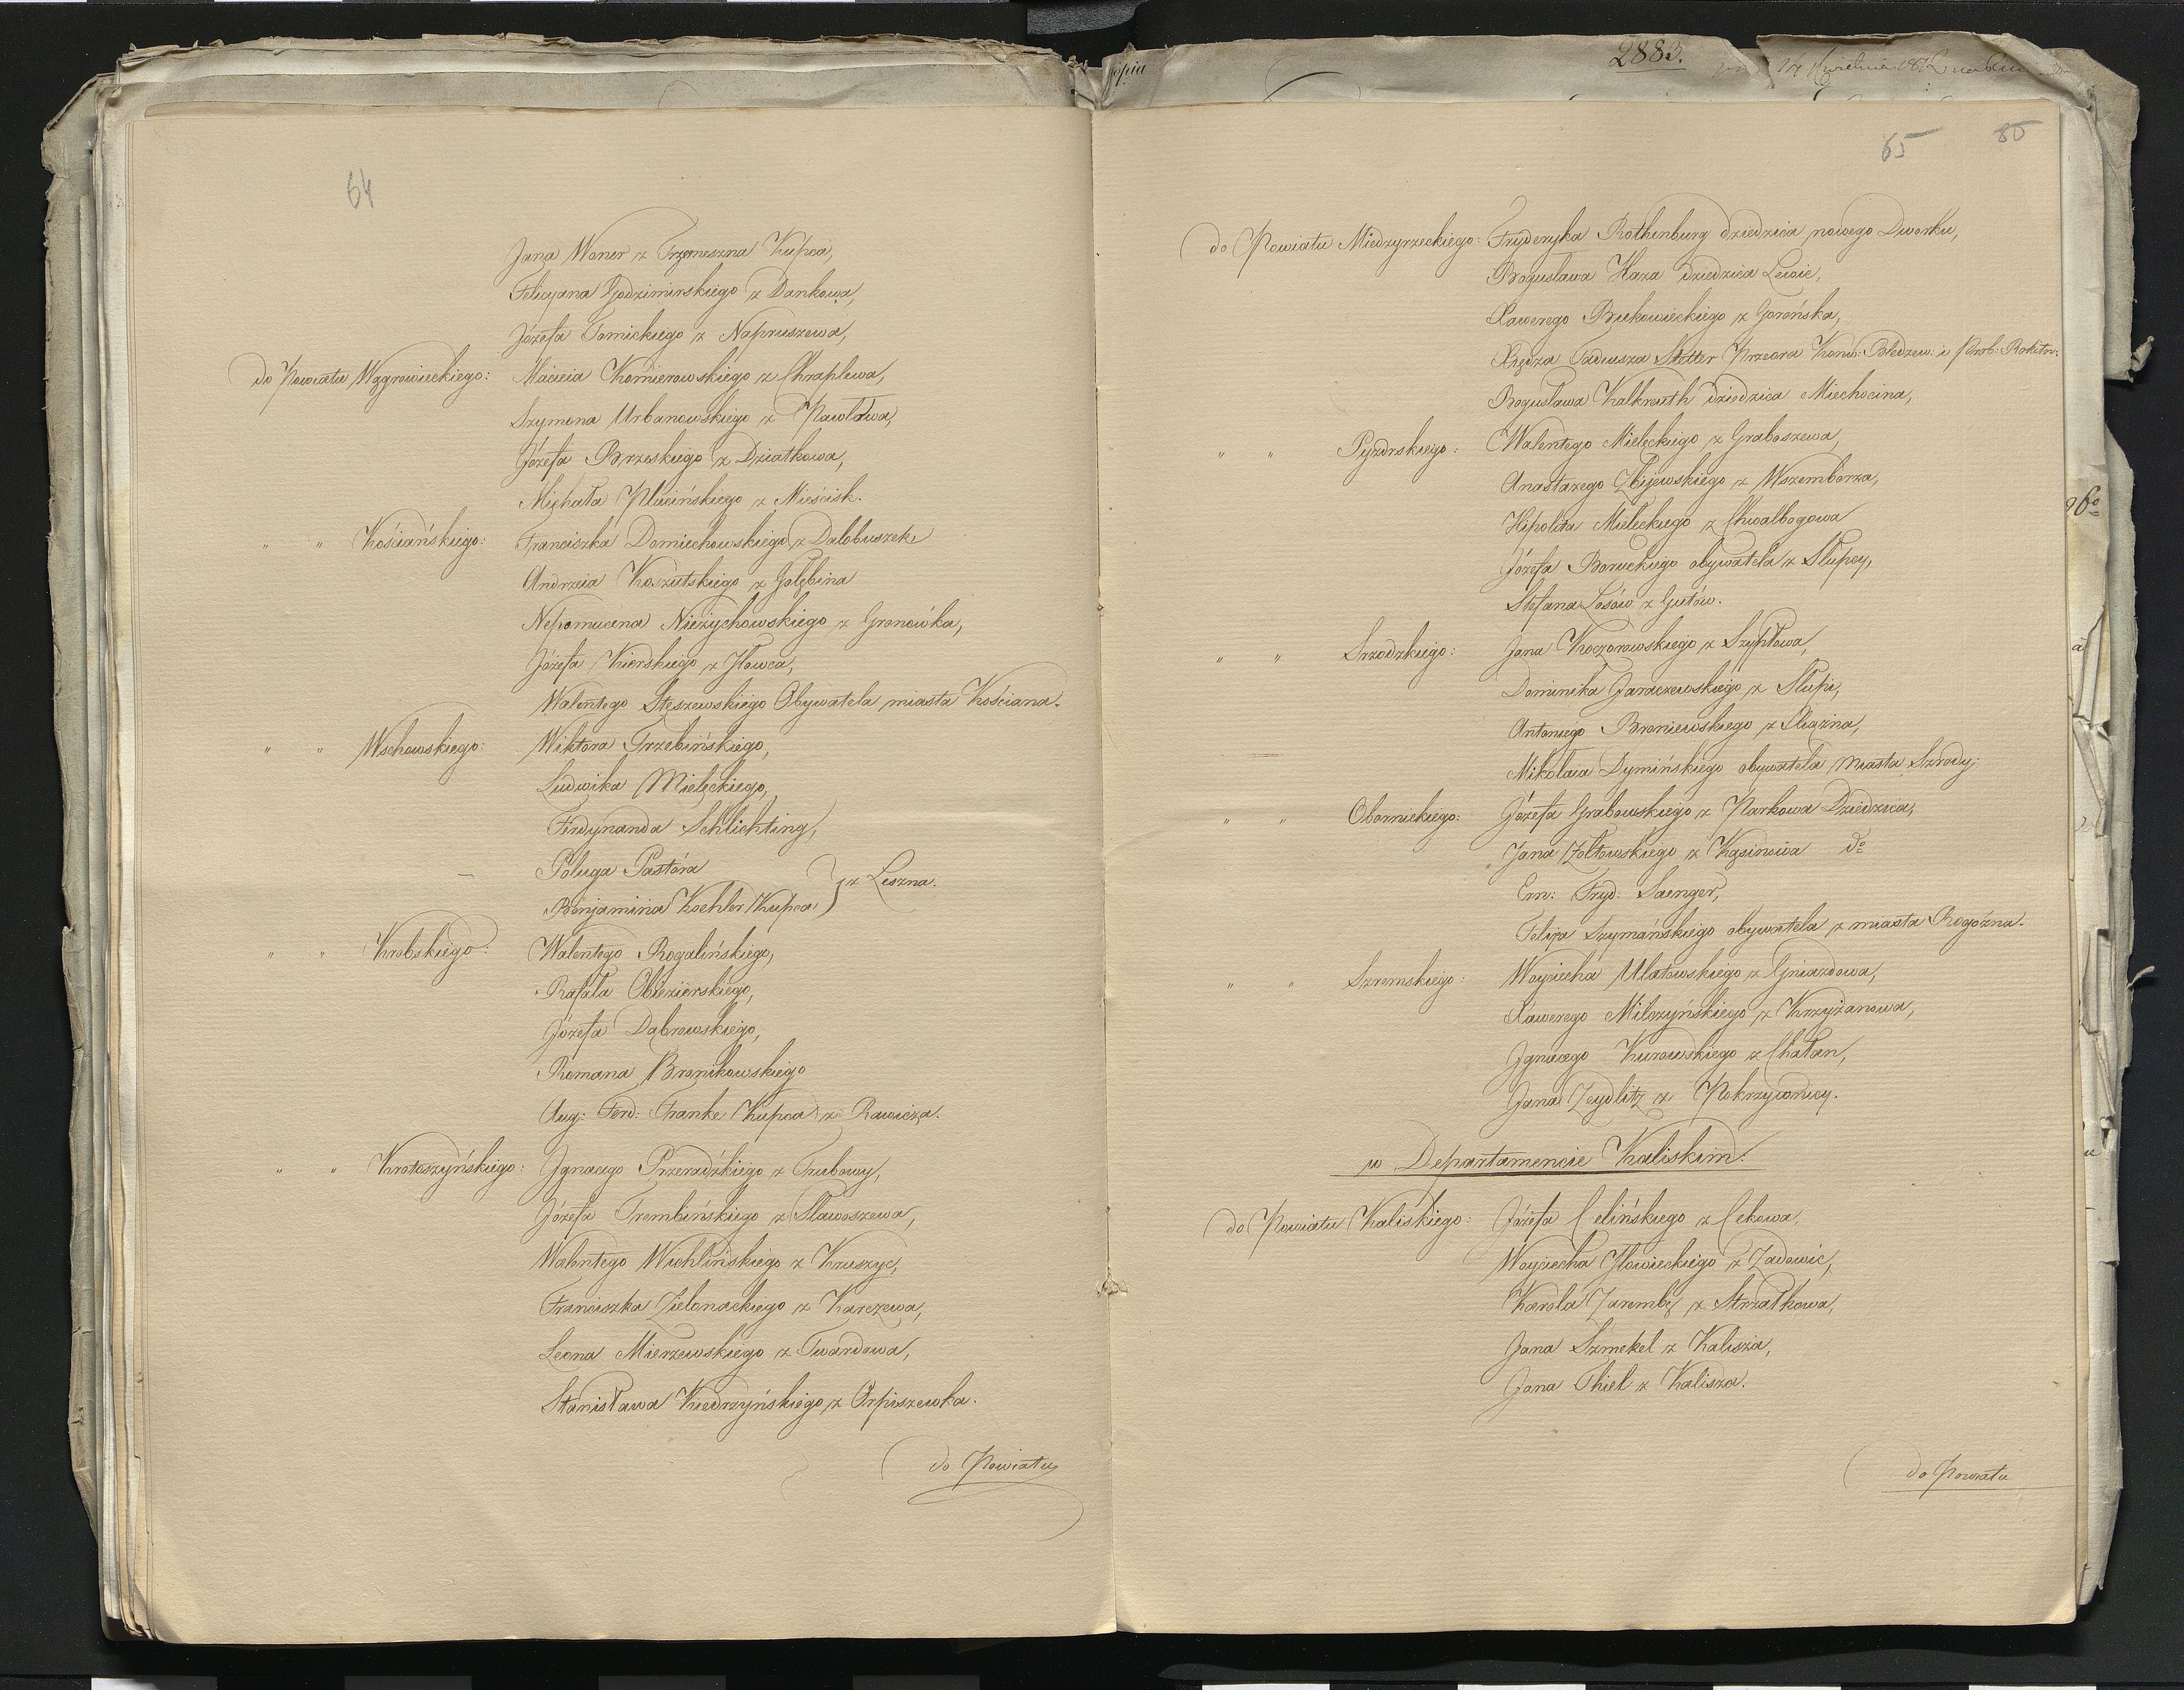 64
Jana Woner z Trzemeszna Kupca,
Felicyana Godzimirskiego z Dankowa,
Józefa Tomickiego z Napruszewa,
do Powiatu Wągrowieckiego: Macieia Komierowskiego z Chraplewa,
Szymona Urbanowskiego z Pawłowa,
Józefa Brzeskiego z Dziatkowa,
Michała Placińskiego z Mieścisk.
" " Kościańskiego: Franciszka Domiechowskiego z Dalobuszek
Andrzeia Koszutskiego z Gołębina
Nepomucena Nieżychowskiego z Gronówka,
Józefa Kierskiego z Iłowca,
Walentego Stęszewskiego Obywatela miasta Kościana.
" " Wschowskiego: Wiktora Trzebińskiego,
Ludwika Mielęckiego,
Ferdynanda Schlichting,
Poluga Pastora
Benjamina Koehler Kupca } z Leszna.
" " Krobskiego: Walentego Rogalińskiego,
Rafała Obiezierskiego,
Józefa Dąbrowskiego,
Romana Bronikowskiego
Aug: Ferd: Franke Kupca z Rawicza.
" " Krotoszyńskiego: Ignacego Przeradzkiego z Trubowy,
Józefa Trembińskiego z Sławoszewa,
Walentego Wichlińskiego z Kruszyc,
Franciszka Zielonackiego z Karczewa,
Leona Mierzewskiego z Twardowa,
Stanisława Kiedrzyńskiego z Orpiszewka.
do Powiatu
2883.
65 85
do Powiatu Miedzyrzeckiego: Fryderyka Rothenburg dziedzica nowego Dworku,
Bogusława Haza dziedzica Lewic,
Xawerego Bukowieckiego z Goreńska,
Xiędza Tadeusza Stotter Przeora Konw: Bledzew: i Prob: Rokitn:
Bogusława Kalkreuth dziedzica Miechocina,
" " Pyzdrskiego: Walentego Mielęckiego z Graboszewa,
Anastazego Zbijewskiego z Wszemborza,
Hipolita Mielęckiego z Chwalbogowa
Józefa Boruckiego obywatela z Słupcy,
Stefana Łosów z Gutów.
" " Szrodzkiego: Jana Koczorowskiego z Szypłowa,
Dominika Jaraczewskiego z Słupi,
Antoniego Broniewskiego z Ślązina,
Mikołaia Dymińskiego obywatela miasta Szrody.
" " Obornickiego: Józefa Grabowskiego z Parkowa Dziedzica,
Jana Zołtowskiego z Kąsinowa do
Ern: Fryd: Saenger,
Felixa Szymańskiego obywatela z miasta Rogoźna.
" " Szremskiego: Woyciecha Ulatowskiego z Gniazdowa,
Xawerego Milczyńskiego z Krzyżanowa,
Ignacego Kurowskiego z Chałan,
Jana Zeydlitz z Pokrzywnicy.
w Departamencie Kaliskim.
do Powiatu Kaliskiego: Józefa Celińskiego z Cekowa,
Woyciecha Iłowieckiego z Zadowic,
Karola Zaremby z Strzałkowa,
Jana Szmekel z Kalisza,
Jana Thiel z Kalisza.
do Powiatu